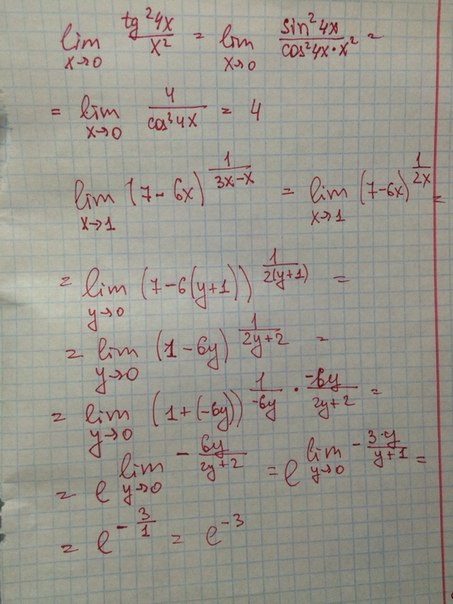 lim x→0 tg²4x / x² = lim x→0 sin²4x / cos²4x·x² =
= lim x→0 4 / cos³4x = 4
lim x→1 (7-6x)^(1/(3x-x)) = lim x→1 (7-6x)^(1/2x) =
= lim y→0 (7-6(y+1))^(1/2(y+1)) =
= lim y→0 (1-6y)^(1/(2y+2)) =
= lim y→0 (1+(-6y))^(1/-6y · -6y/(2y+2)) =
= e^(lim y→0 - 6y/(2y+2)) = e^(lim y→0 - 3·y/(y+1)) =
= e^(-3/1) = e^(-3)